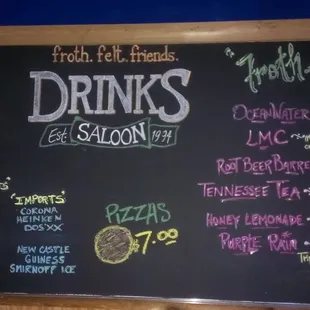 froth. felt. friends.
DRINKS
Est SALOON 1934
"IMPORTS"
CORONA
HEINKEN
DOS XX
NEW CASTLE
GUINESS
SMIRNOFF ICE
PIZZAS
7.00
"Froth
OCEAN WATER
LMC
ROOT BEER BARRE
TENNESSEE TEA
HONEY LEMONADE
PURPLE RAIN